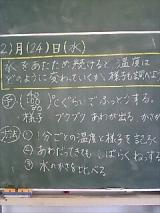 2月(24)日(水)
水をあたため続けると温度は
どのように変わっていくか、様子も調べよう
予 ℃ぐらいでふっとうする。
様子 ブクブク あわが出る
方法 ① 1分ごとの温度と様子を記ろく
② あわだってきても しばらくねっする
③ 水のかさを比べる